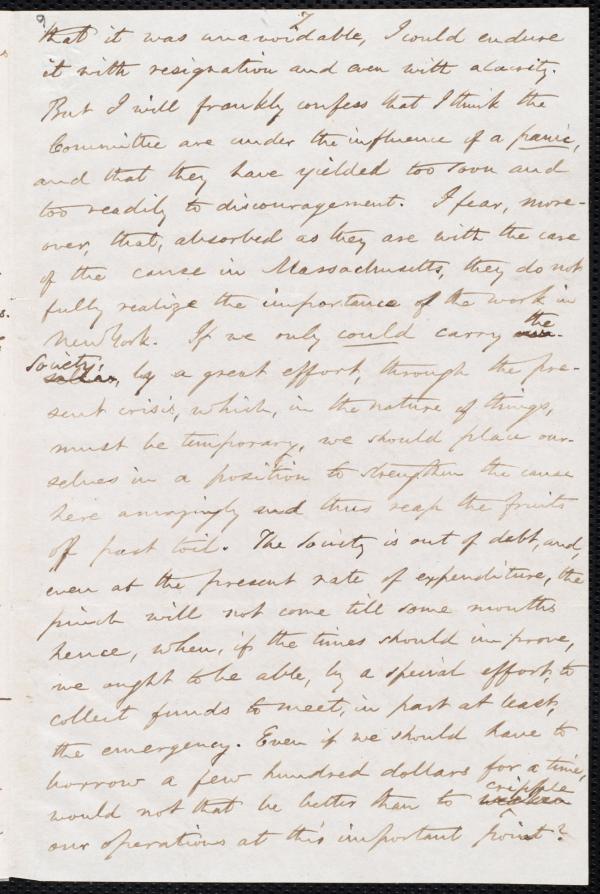 7
that it was unavoidable, I could endure
it with resignation and even with alacrity.
But I will frankly confess that I think the
Committee are under the influence of a panic,
and that they have yielded too soon and
too readily to discouragement. I fear, more-
over, that, absorbed as they are with the care
of the cause in Massachusetts, they do not
fully realize the importance of the work in
New York. If we only could carry the
Society, by a great effort, through the pre-
sent crisis, which, in the nature of things,
must be temporary, we should place our-
selves in a position to strengthen the cause
here amazingly and thus reap the fruits
of past toil. The Society is out of debt, and,
even at the present rate of expenditure, the
pinch will not come till some months
hence, when, if the times should improve,
we ought to be able, by a special effort, to
collect funds to meet, in part at least,
the emergency. Even if we should have to
borrow a few hundred dollars for a time,
would not that be better than to cripple
our operations at this important point?